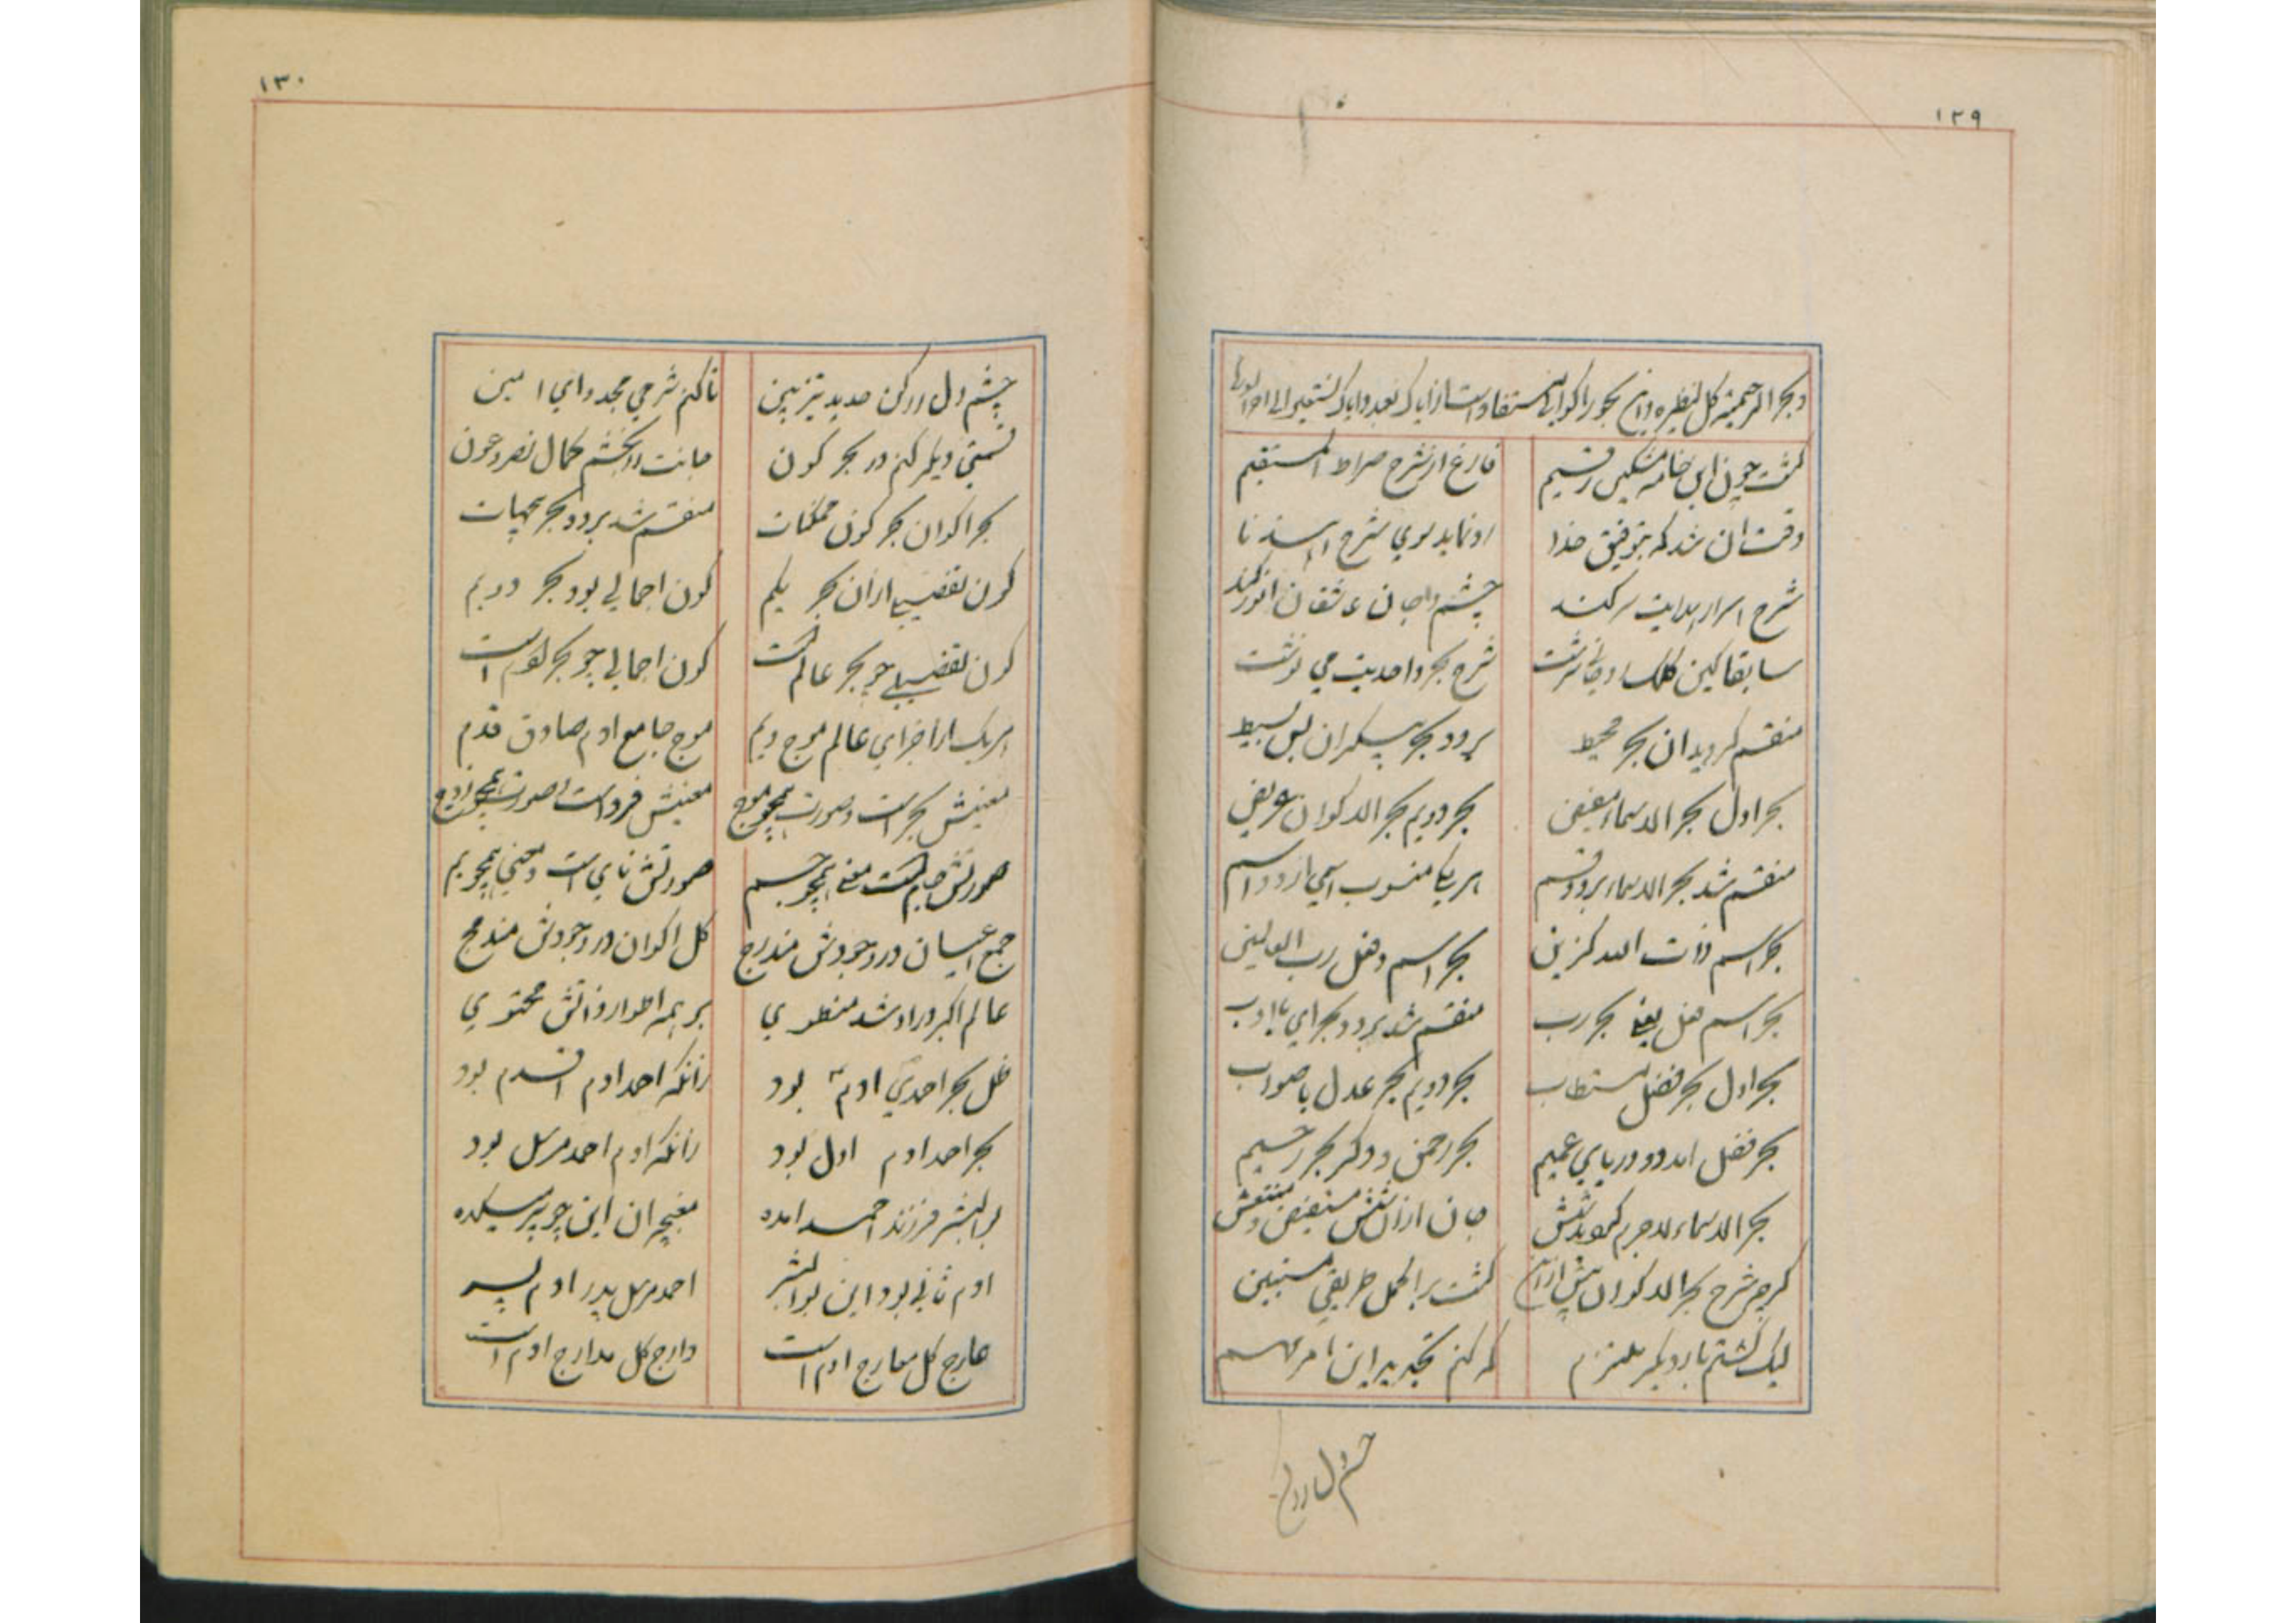 ۱۲۹
گشت چون این خامه مشکین رقیم فارغ از شرح صراط المستقیم
وقت ان شد که بتوفیق خدا رو نماید سوی شرح اهدنا
شرح اسرار هدایت سر کند چشم و جان عاشقان انور کند
سابقا کین کلک شرح بحر واحدیت می نوشت
منقسم کردید ان بحر محیط بر دو بحر بیکران بس بسیط
بحر اول بحر الاسماء مفیض بحر دویم بحر الاکوان عریض
منقسم شد بحر الاسماء بر دو قسم هر یکی منسوب اسمی از دو اسم
بحر اسم ذات الله کزین بحر اسم وفعل رب العالمین
بحر اسم فعل یعنی بحر رب منقسم شد بر دو بحر ای با ادب
بحر اول بحر فضل مستطاب بحر دویم بحر عدل با صواب
بحر فضل امد دو دریای عمیم بحر رحمن و دکر بحر رحیم
بحر الاسماء لاجرم جان ازان مستفیض و منتقش
کرچه شرح بحر الاکوان پیش ازین کشت بر اکمل طریقی مستبین
لیک کشتم بار دیکر ملتزم که کنم تجدید این امر مهم
چشم دل رو کن
۱۳۰
چشم دل رو کن حدید تیزبین تا کنم شرحی مجدد ای امین
قسمتی دیکر کنم در بحر کون جانت رو بخشم کمال نصر و عون
بحر اکوان بحر کون ممکنات منقسم شد بر دو بحر بیجهات
کون تفصیلی ازان بحر یکم کون اجمالی بود بحر دویم
کون تفصیلی چو بحر عالم است کون اجمالی چو بحر ادم است
هر یک از اجزای عالم موج ویم موج جامع ادم صادق قدم
معنیش بحر است و صورت همچو موج معنیش فرد است و صورت همچو زوج
صورتش جام است معنی همچو جسم صورتش نای است و معنی همچو بم
جمع اعیان در وجودش مندرج کل اکوان در وجودش مندمج
عالم اکبر در او شد منطوی بر همه اطوار ذاتش محتوی
ظل بحر احمدی ادم بود زانکه احمد ادم اقدم بود
بحر احمد ادم اول بود زانکه ادم احمد مرسل بود
بوالبشر فرزند احمد امده مغبچه ان این چو پیر میکده
ادم ثانی بود این بوالبشر احمد مرسل پدر ادم پسر
عارج کل معارج ادم است دارج کل مدارج ادم است